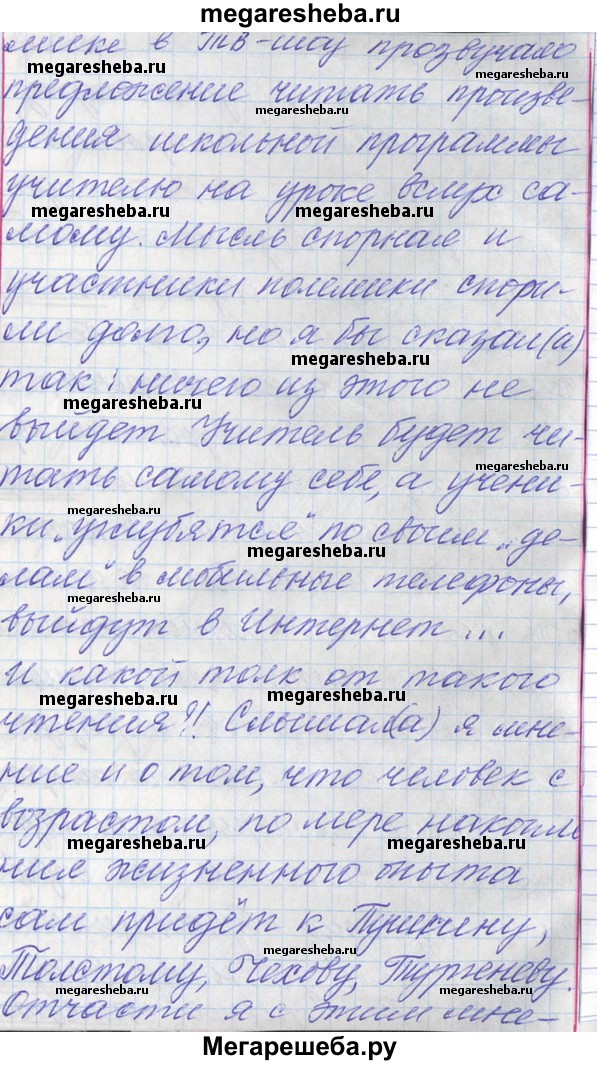 megaresheba.ru
мике в ТВ-шоу прозвучало
megaresheba.ru megaresheba.ru
предложение читать произве-
megaresheba.ru
дения школьной программы
megaresheba.ru
учителю на уроке вслух са-
megaresheba.ru megaresheba.ru
мому. Мысль спорная и
участники полемики спори-
ли долго, но я бы сказал(а)
megaresheba.ru
так: ничего из этого не
megaresheba.ru
выйдет. Учитель будет чи-
megaresheba.ru
тать самому себе, а учени-
megaresheba.ru
ки „углубятся" по своим „де-
megaresheba.ru
лам" в мобильные телефоны,
megaresheba.ru
выйдут в Интернет...
И какой толк от такого
megaresheba.ru megaresheba.ru
чтения?! Слышал(а) я мне-
ние и о том, что человек с
возрастом, по мере накопле
megaresheba.ru
ния жизненного опыта
сам придёт к Пушкину,
megaresheba.ru
Толстому, Чехову, Тургеневу.
megaresheba.ru
Отчасти я с этим мне-
Мегарешеба.ру